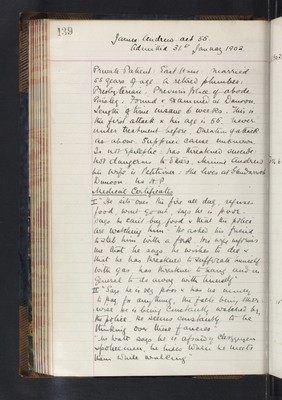 139
James Andrews aet 55.
Admitted 31st January 1902.
Private Patient: East House married
55 years of age. A retired plumber.
Presbyterian. Previous place of abode
Found & examined in Dunoon.
Length of time insane 6 weeks. This is
the first attack & his age is 55. Never
under treatment before. Duration of attack
as above. Supposed cause unknown.
Is not Epileptic. Has threatened suicide.
Not dangerous to others. Andrew
his wife is Petitioner. She lives at
Dunoon. No H.P.
Medical Certificates
I "He sits over the fire all day, refuses
food, wont go out, says he is poor,
says he cant buy food & that the police
are watching him. He asked his friend
to stab him with a fork. His wife informs
me that he says he wishes to die &
that he has threatened to suffocate himself
with gas, has threatened to hang and in
general to do away with himself"
II "Says he is very poor & has no money
to pay for anything, the facts being other-
wise. He is being constantly watched by
the police. He seems constantly to be
thinking over these fancies.
he is afraid of clergymen
policemen, he hides when he meets
them while walking"